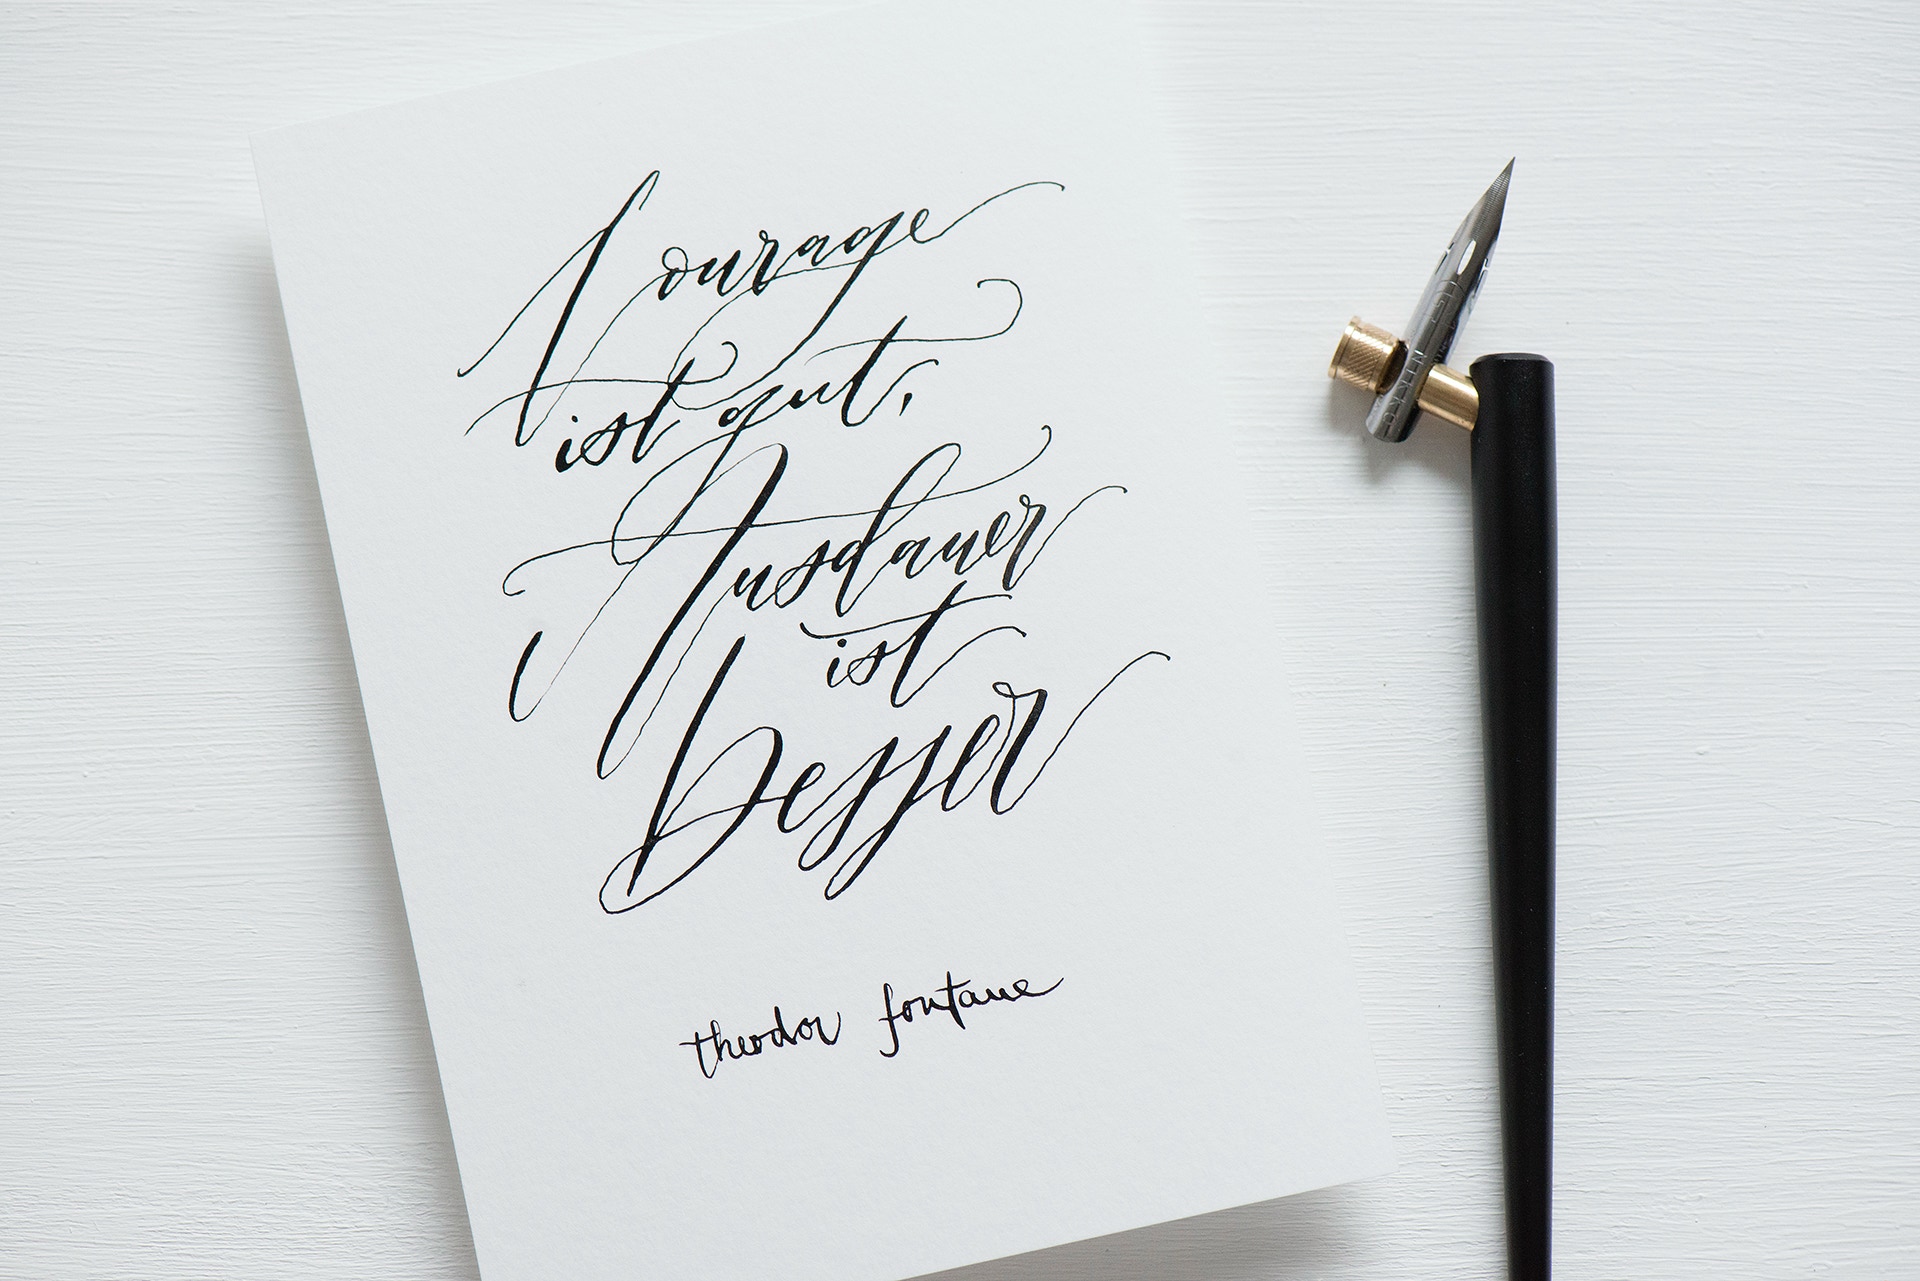 Courage
ist gut,
Ausdauer
ist
besser
theodor fontane
NIKKO